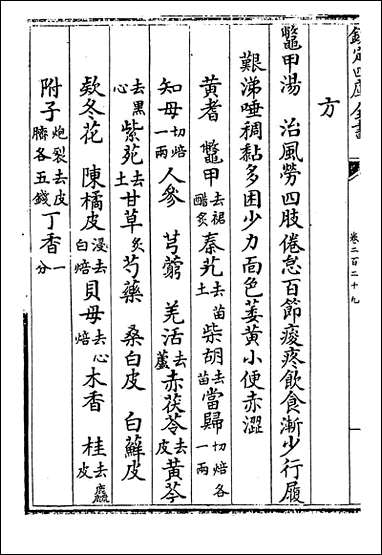 欽定四庫全書
卷二百二十九
方
鼈甲湯　治風勞四肢倦怠百節痠疼飲食漸少行履
艱涕唾稠黏多困少力面色萎黃小便赤澀
黃耆　鼈甲去裙醋炙　秦艽去苗土　柴胡去苗　當歸切焙各一兩
知母切焙一兩　人參　芎藭　羌活去蘆　赤茯苓去皮　黃芩
去黑心　紫菀去土　甘草炙　芍藥　桑白皮　白蘚皮
款冬花　陳橘皮浸去白焙　貝母去心焙　木香　桂去麤皮
附子炮裂去皮臍各五錢　丁香一分